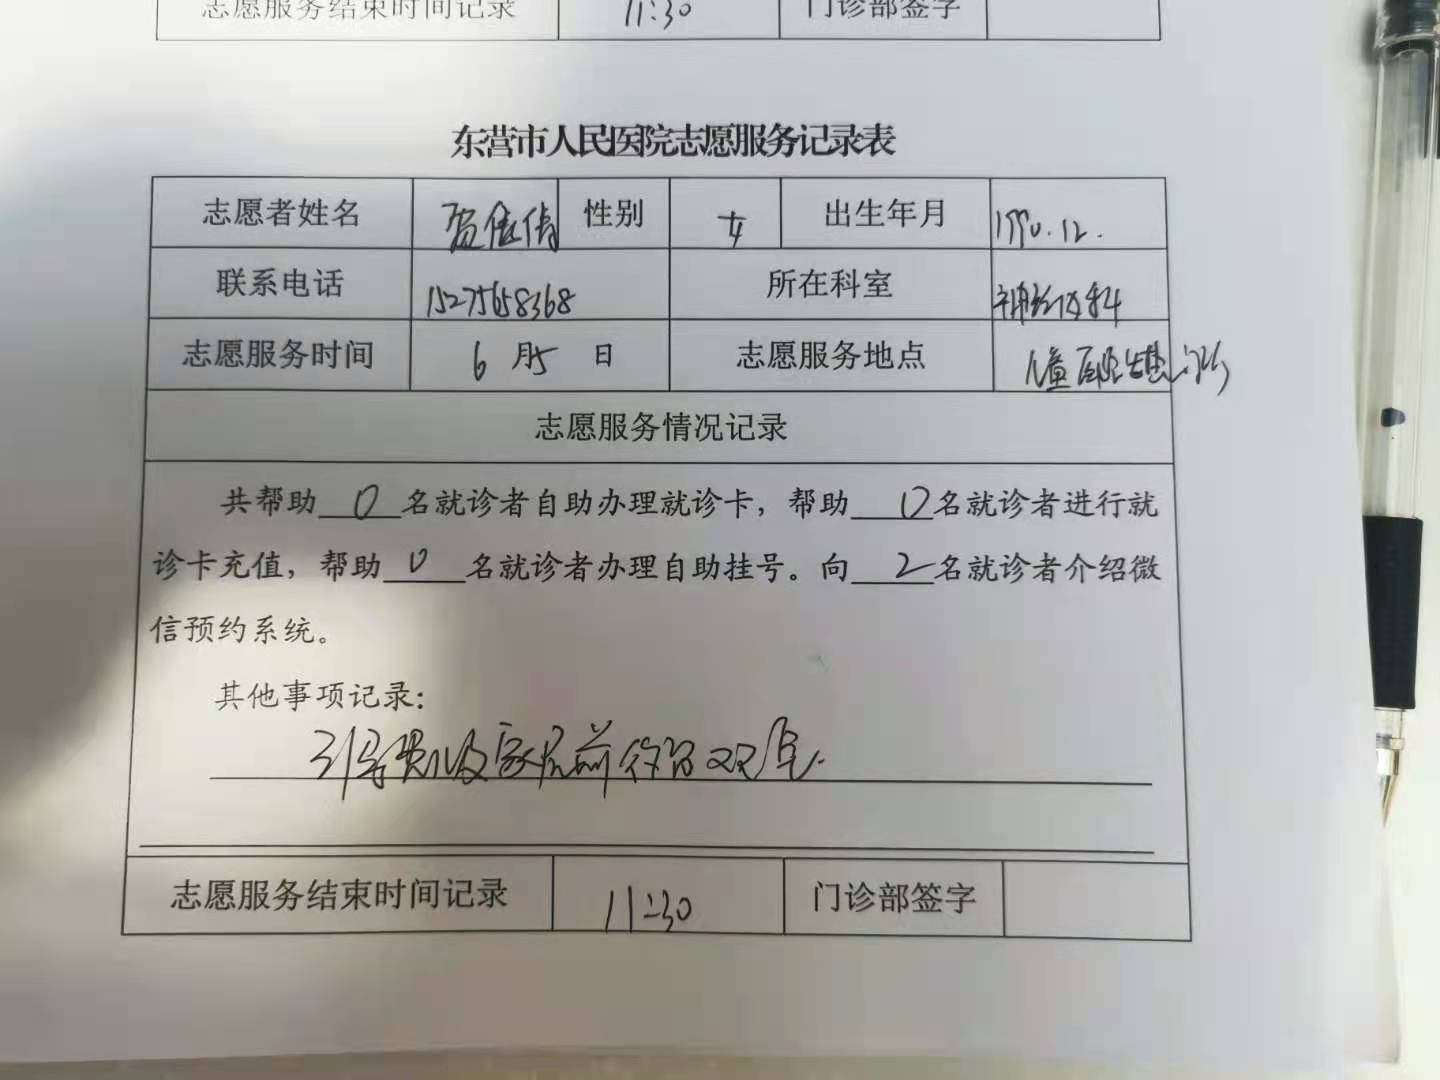 志愿服务结束时间记录 11:30 门诊部签字
东营市人民医院志愿服务记录表
志愿者姓名 性别 女 出生年月 1990.12.
联系电话 15275658368 所在科室 神经内科
志愿服务时间 6月5日 志愿服务地点 儿童 门诊
志愿服务情况记录
共帮助 0 名就诊者自助办理就诊卡，帮助 0 名就诊者进行就
诊卡充值，帮助 0 名就诊者办理自助挂号。向 2 名就诊者介绍微
信预约系统。
其他事项记录：
引导患儿及家属前往留观室.
志愿服务结束时间记录 11:30 门诊部签字